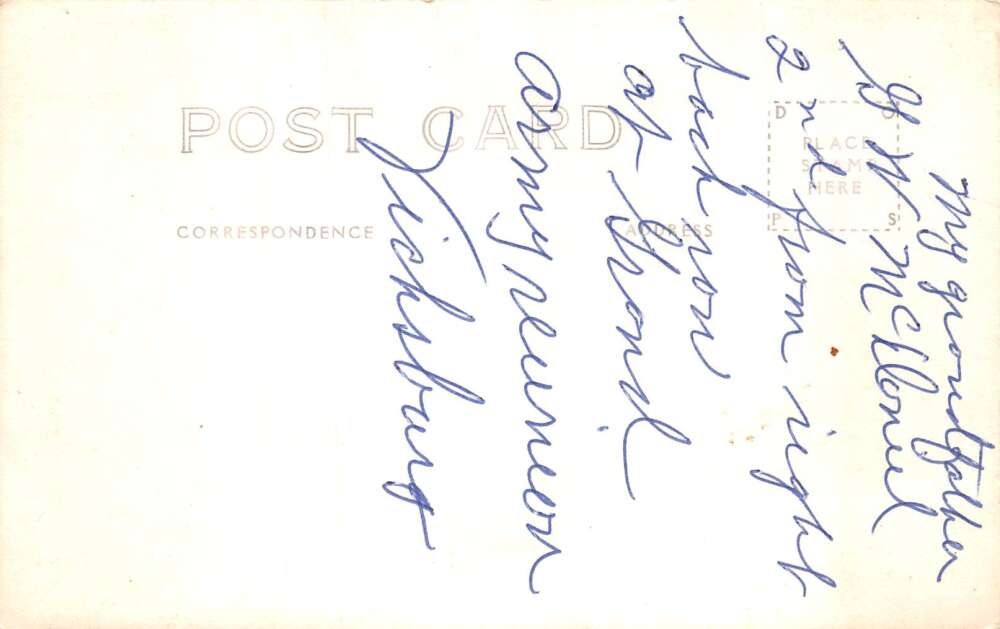 POST CARD
CORRESPONDENCE
ADDRESS
D O
PLACE
STAMP
HERE
P S
My grandfather
G W McDaniel
2nd from right
back row
at Grand
army reunion
Vicksburg